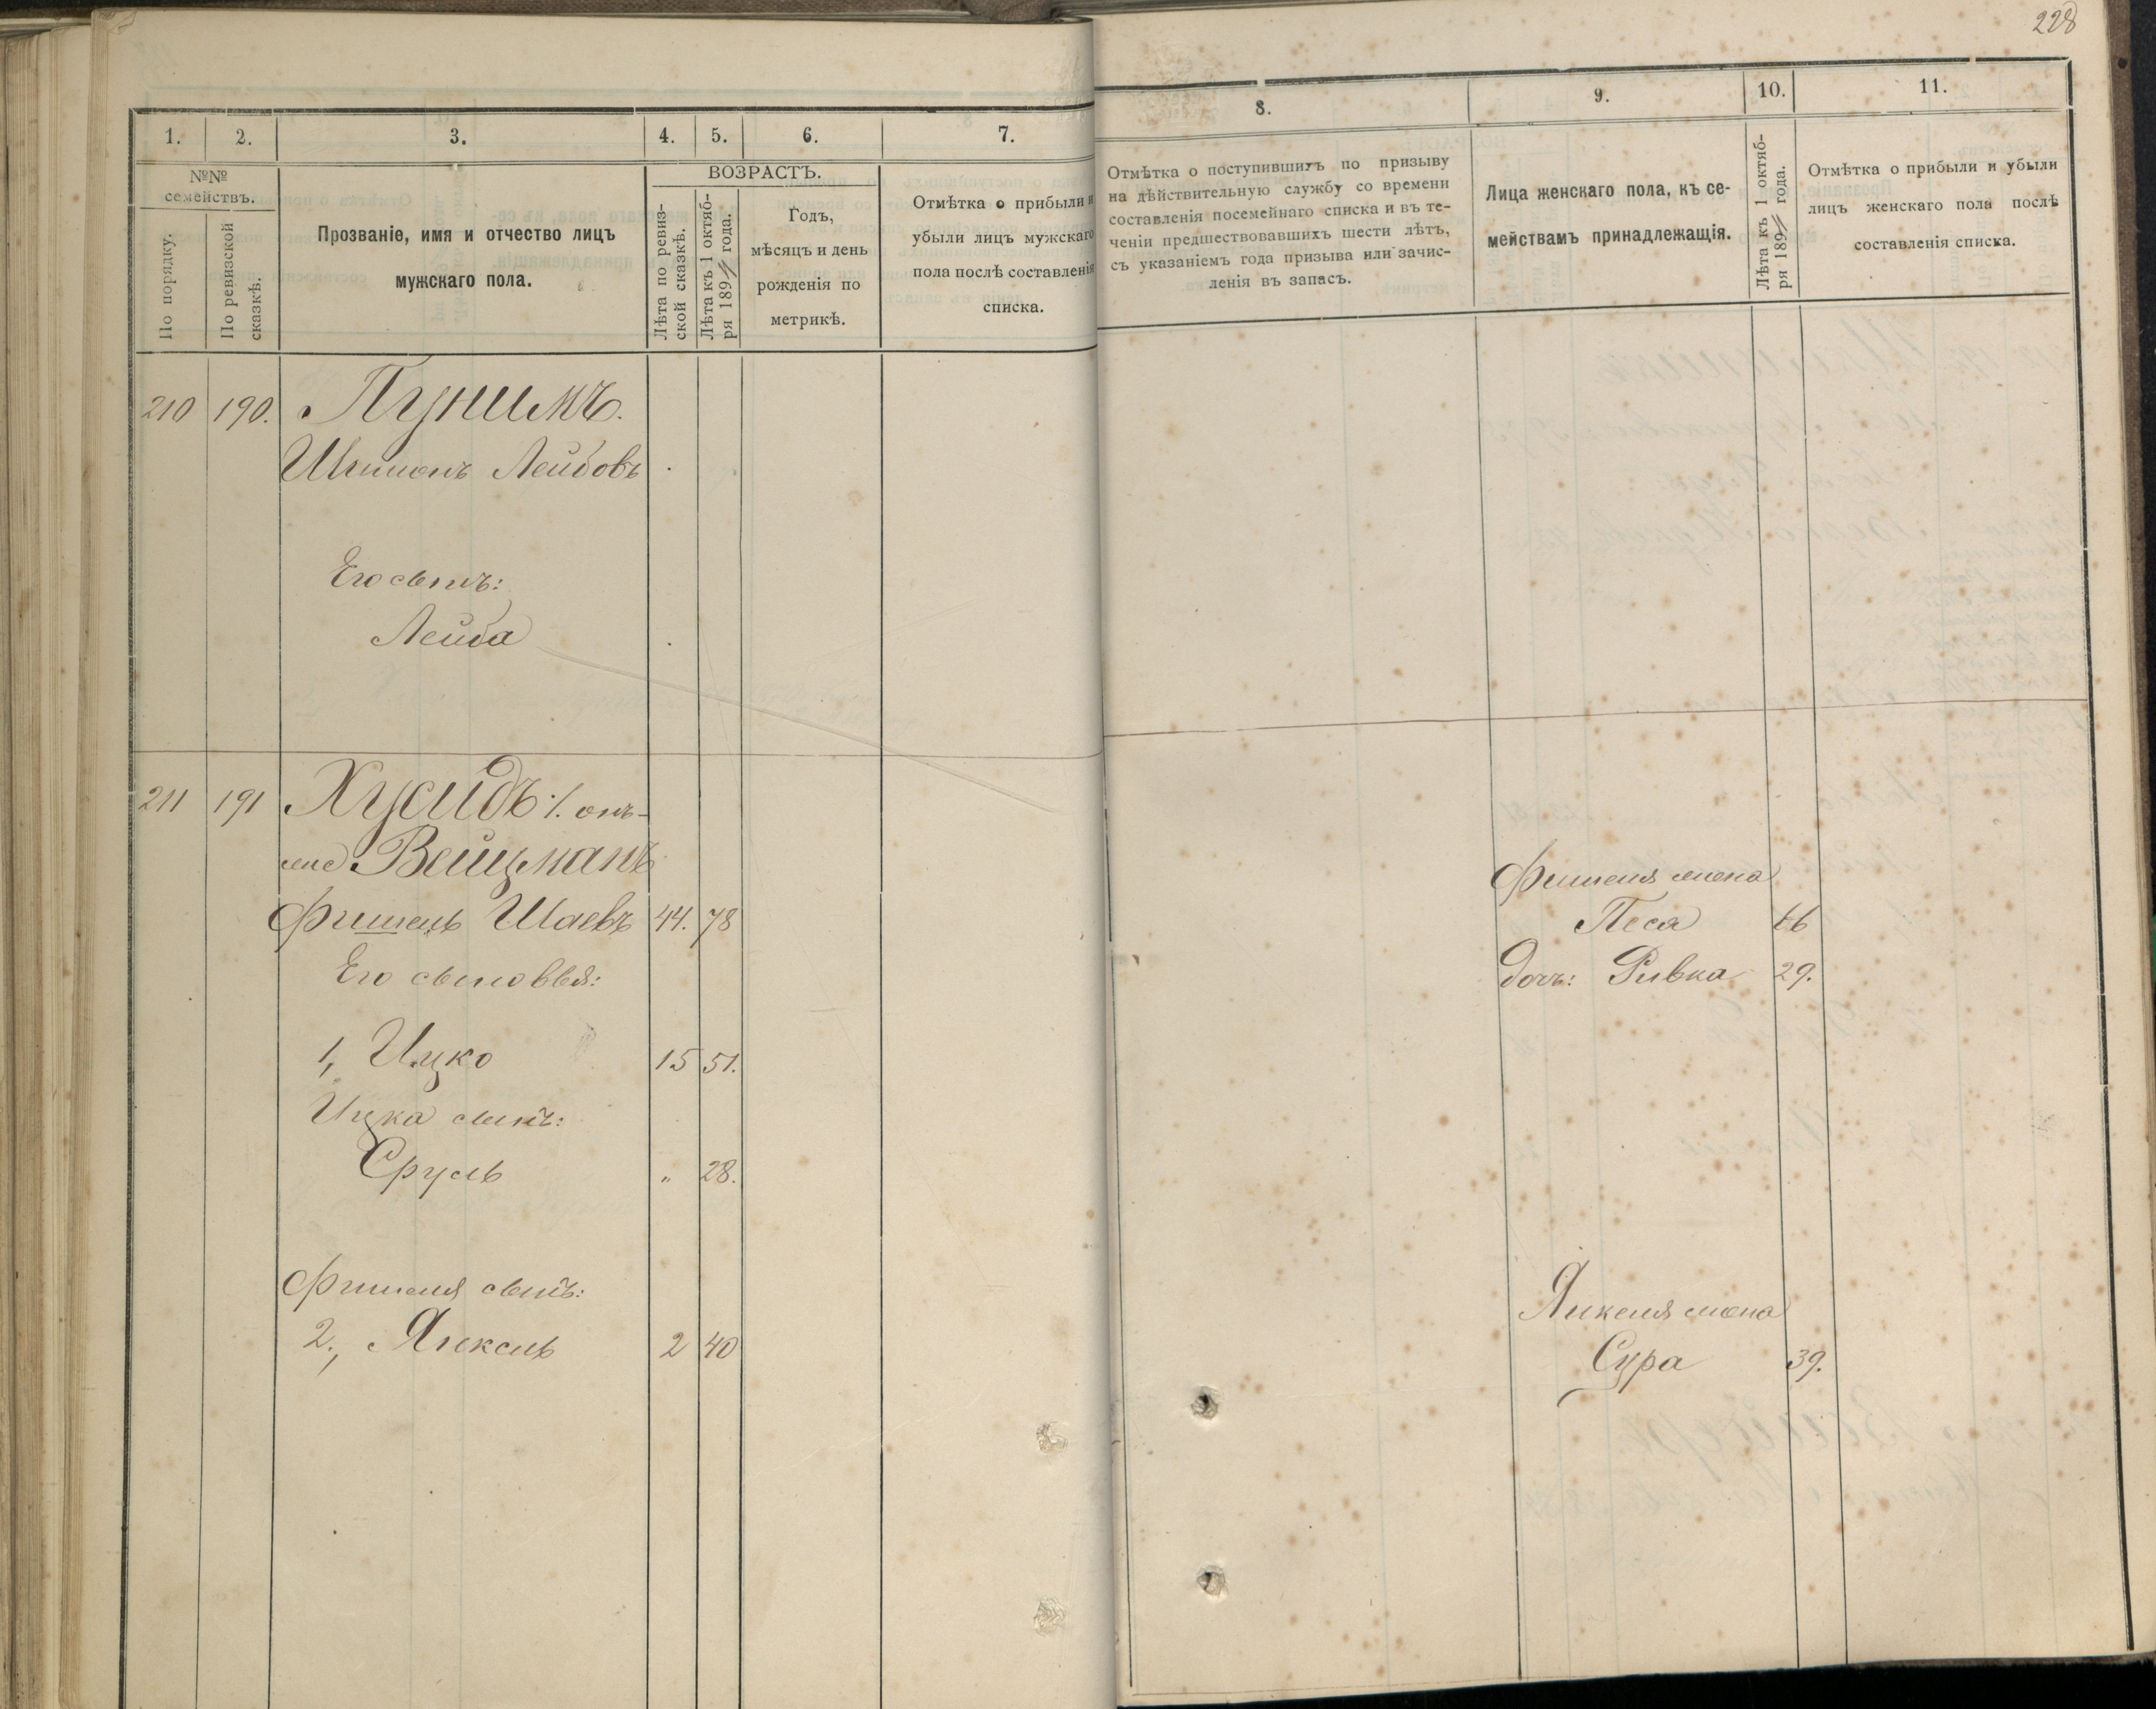 228
1.
2.
3.
4.
5.
6.
7.
8.
9.
10.
11.
№№ семействъ.
По порядку.
По ревизской сказкѣ.
Прозваніе, имя и отчество лицъ
мужскаго пола.
ВОЗРАСТЪ.
Лѣта по ревиз-
ской сказкѣ.
Лѣта къ 1 октяб-
ря 189 года.
Годъ,
мѣсяцъ и день
рожденія по
метрикѣ.
Отмѣтка о прибыли и
убыли лицъ мужскаго
пола послѣ составленія
списка.
Отмѣтка о поступившихъ по призыву
на дѣйствительную службу со времени
составленія посемейнаго списка и въ те-
ченіи предшествовавшихъ шести лѣтъ,
съ указаніемъ года призыва или зачис-
ленія въ запасъ.
Лица женскаго пола, къ се-
мействамъ принадлежащія.
Лѣта къ 1 октяб-
ря 189 года.
Отмѣтка о прибыли и убыли
лицъ женскаго пола послѣ
составленія списка.
210 190. Пунимъ.
Шимонъ Лейбовъ
Его сынъ:
Лейба
211 191 Хусидъ ·/. онъ-
же Вейцманъ
Фишель Шаевъ 44. 78
Его сыновья:
1, Ицко 15 51.
Ицка сынъ:
Сруль " 28.
Фишеля сынъ:
2., Янкель 2 40
Фишеля жена
Песя 66
дочь: Ривка 29.
Янкеля жена
Сура 39.